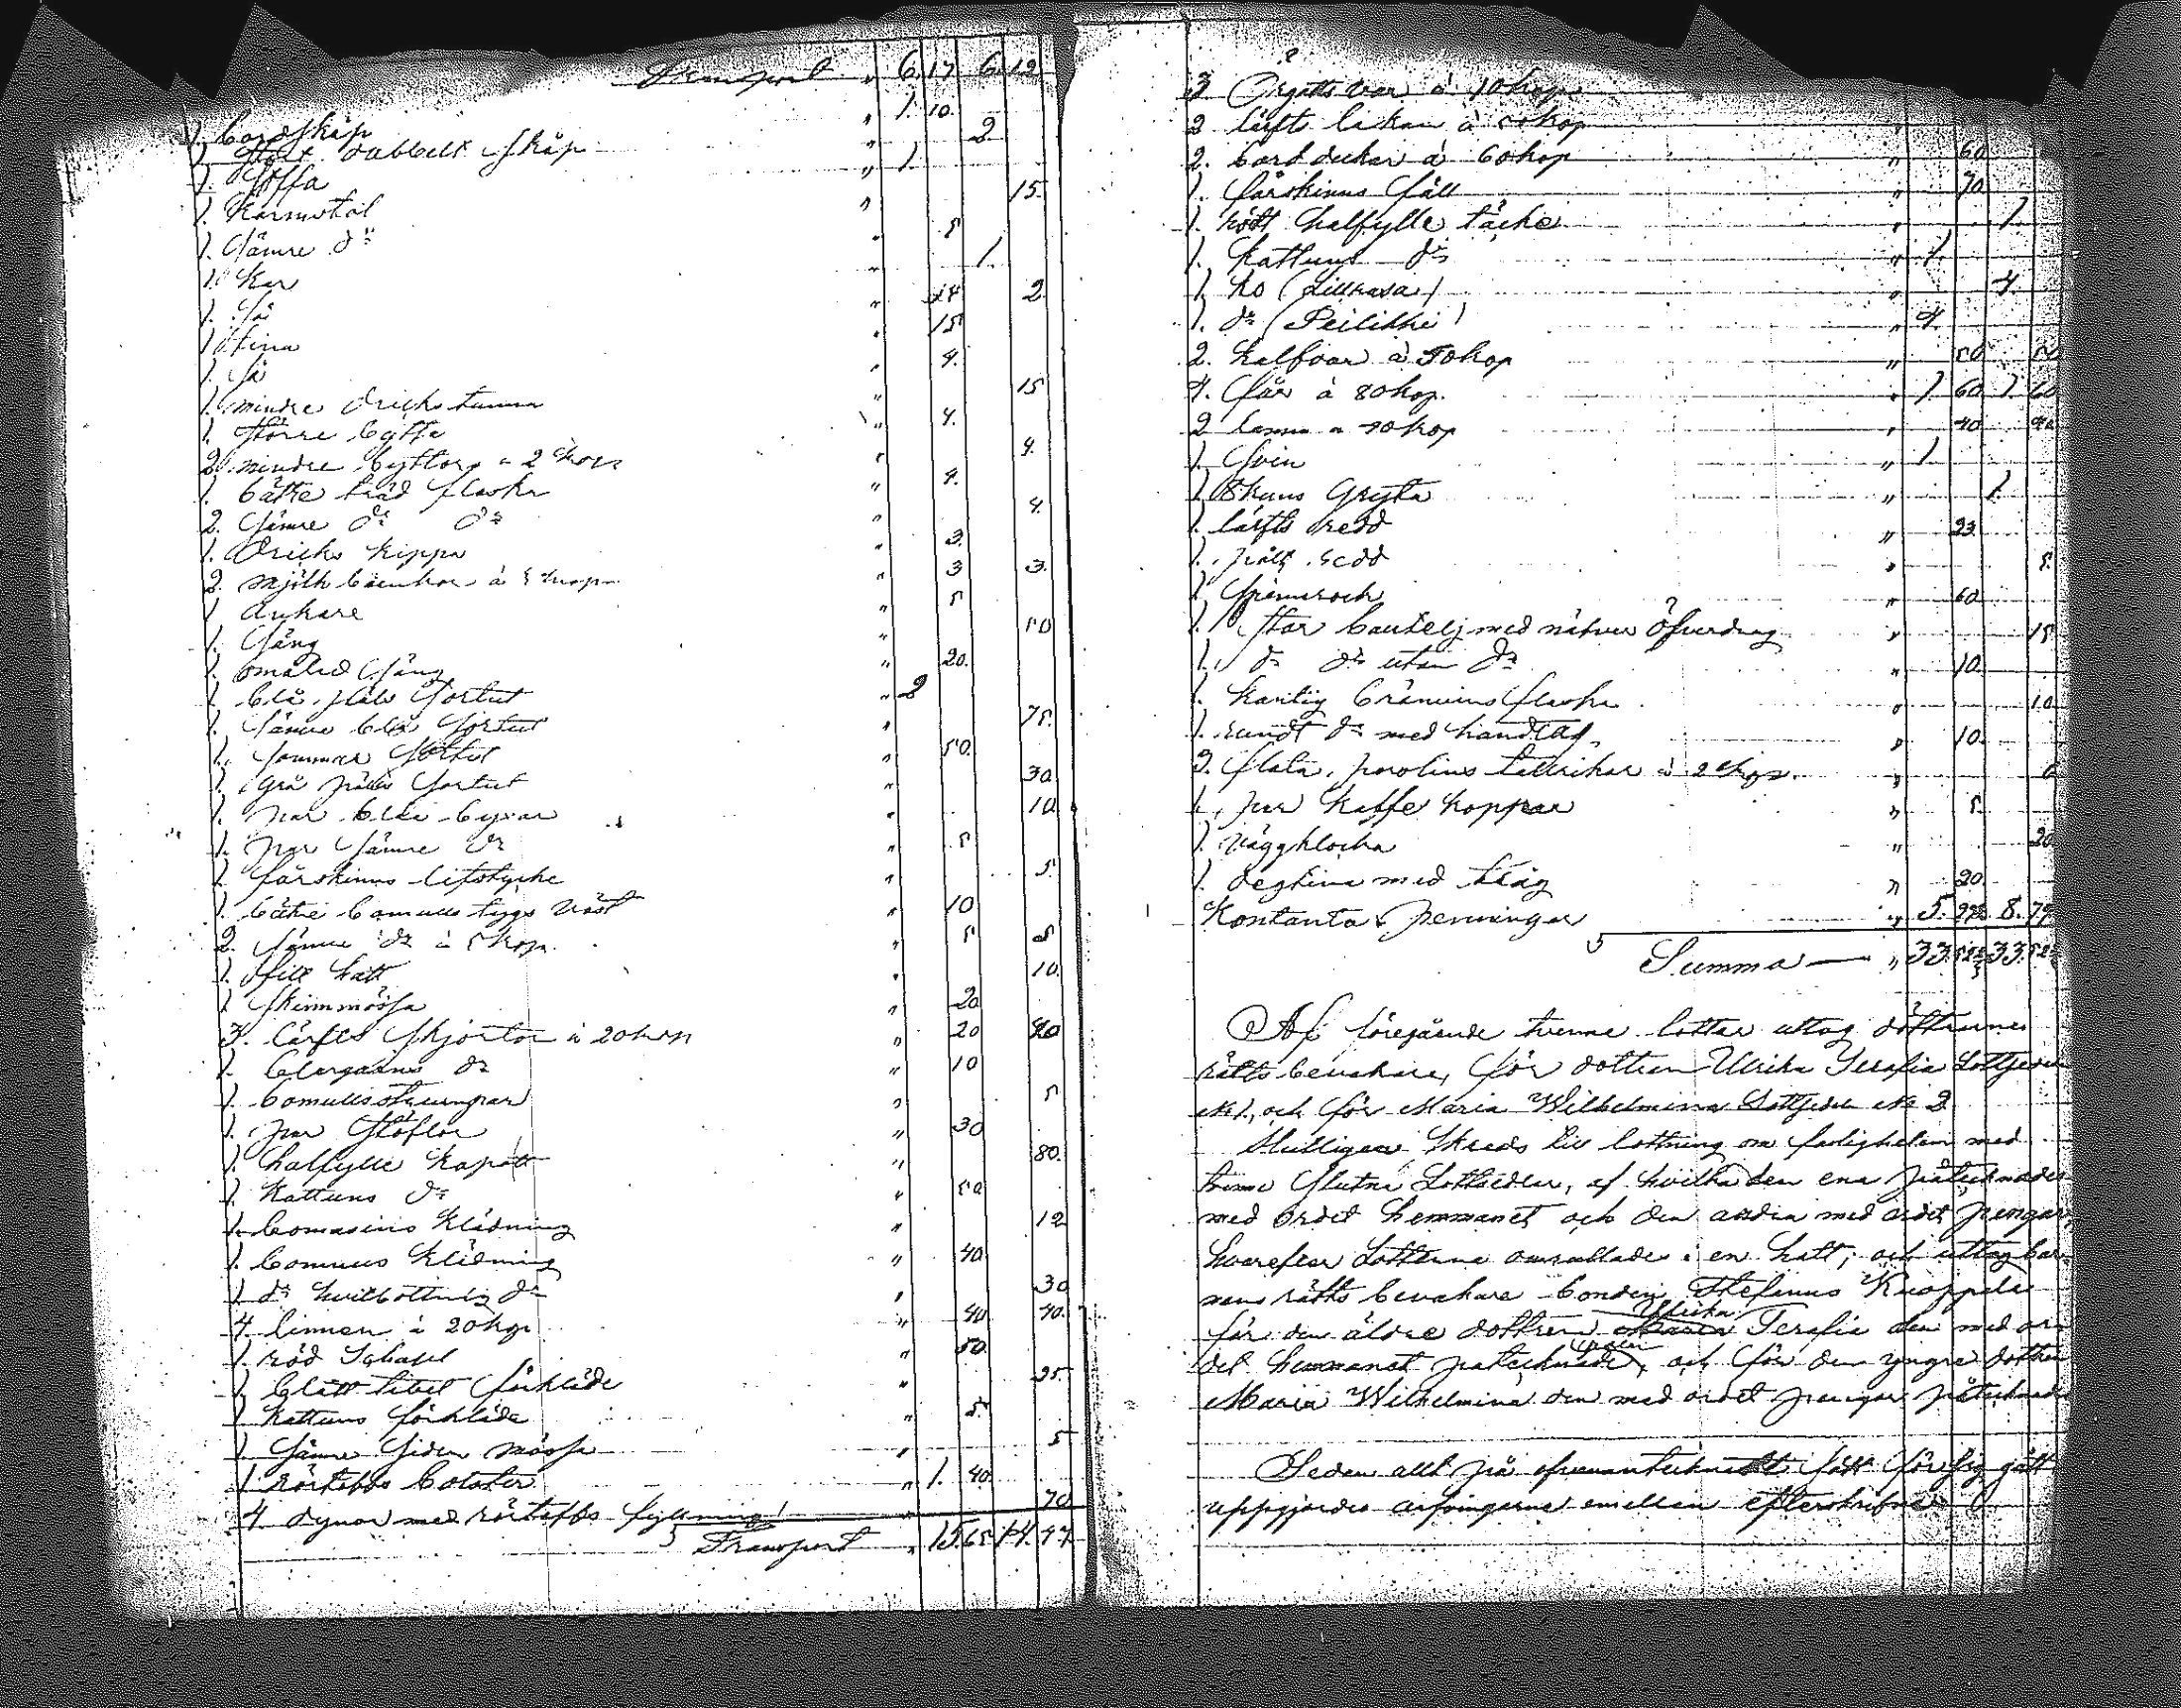 Transport " 6. 17 6. 12
1. bordskåp " 1. 10.
1. stort dubbelt skåp " 2
1. soffa " 1
1. Karmstol " 15.
1. sämre do " 5
1. Kar " 1.
1. så " 2
1 tina " 15
1. så " 4.
1. mindre dricks tunna " 15
1. större bytta " 4.
2. mindre byttor a 2 kop " 4.
1. bättre träd flaska " 4.
2. sämre do do " 4.
1. dricks kippa " 3.
2. mjölk bunkar à 3 kop " 3 3.
1 ankare " 5
1. säng " 50
1. omålad säng " 20.
1 blå päls sortut " 2
1. sämre blå sortut " 75.
1. sommar sortut " 50.
1 grå päls sortut " 30
1. par blå byxor " 10.
1. par sämre do " 5
1 fårskinns lifstycke " 5.
1. bättre bomulls tygs väst " 10
2. sämre do à 5 kop. " 5 5
1. filt hatt " 10.
1 skinnmössa " 20
3. lärfts skjortor à 20 kop " 20 40
1. blaggarns do " 10
1. bomullsstrumpor " 5
1. par stöflor " 30
1. halfylle kapott " 80.
1. Kattuns do " 50
1. bomasins klädning " 12
1. bomulls klädning " 40.
1 do hvitbottnig do " 30
4. linnen à 20 kop " 40 40.
1. röd schasel " 50.
1. blått tibet förkläde " 25.
1 kattuns förkläde " 5
1. sämre siden mössa " 5
1 rörtopps bolster " 1. 40.
4 dynor med rörtopps fyllning " 70
Transport " 15 65 14. 47
3 Örgotts var à 10 kop
2 lärfts lakan à 50 kop
2. bord dukar à 60 kop " 60
1. fårskinns fäll " 70
1. rödt halfylle täcke " 1.
1. Kattuns do " 1.
1. ko (Lillkasa) " 4.
1. do (Peilikki) " 4.
2. kalfvar à 50 kop " 50 50
4. får à 80 kop. " 1 60 1. 60
2 lamm a 40 kop " 40 40
1. svin " 1
1 8 kans gryta " 1
1. lärfts sked " 23.
1. päls sked " 5.
1 spinnrock " 60
1. stor boutelj med nätver öfverdrag " 15.
1. do do utan do " 10.
1. kantig bränvins flaska " 10
1. rundt do med handtag " 10.
3. flata porslins tallrikar à 2 kop. " 6
1. par kaffe koppar " 5.
1. väggklocka " 20
1. degtina med tråg " 20.
Kontanta penningar " 5. 8. 79
Summa — " 33. 52 33. 52
Af föregående tvenne lotter uttog döttrarnes
rätts bevakare, för dottren Ulrika Serafia Lottsedeln
No 1, och för Maria Wilhelmina Lottsedeln No 2
Slutligen skreds till lottning om fastigheten med
tvenne slutna Lottsedlar, af hvilka den ena påtecknades
med ordet hemmanet och den andra med ordet pengar,
hvarefter Lotterna omrullades i en hatt; och uttog bar-
nens rätts bevakare bonden Stefanus Knoppila
för den äldre dottren Ulrika Serafia den med or-
det hemmanet påtecknade sedeln, och för den yngre dottren
Maria Wilhelmina den med ordet pengar påtecknade
Sedan allt på ofvanantecknadt sätt för sig gått
uppgjordes arfvingarne emellan efterskrifne